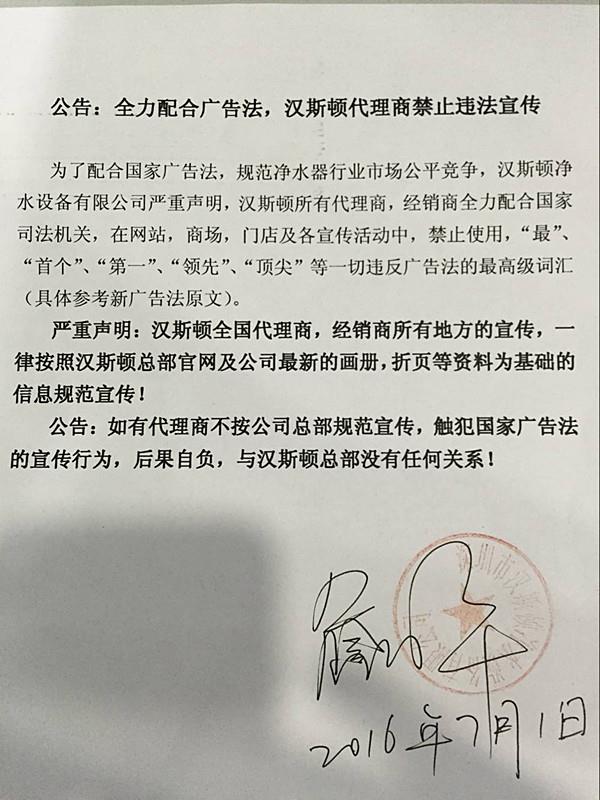 公告：全力配合广告法，汉斯顿代理商禁止违法宣传
为了配合国家广告法，规范净水器行业市场公平竞争，汉斯顿净
水设备有限公司严重声明，汉斯顿所有代理商，经销商全力配合国家
司法机关，在网站，商场，门店及各宣传活动中，禁止使用，“最”、
“首个”、“第一”、“领先”、“顶尖”等一切违反广告法的最高级词汇
（具体参考新广告法原文）。
严重声明：汉斯顿全国代理商，经销商所有地方的宣传，一
律按照汉斯顿总部官网及公司最新的画册，折页等资料为基础的
信息规范宣传！
公告：如有代理商不按公司总部规范宣传，触犯国家广告法
的宣传行为，后果自负，与汉斯顿总部没有任何关系！
深圳市汉斯顿净水设备有限公司
2016年7月1日